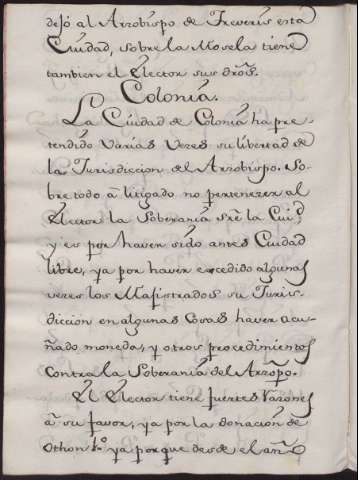 dejó al Arzobispo de Treveris esta
Ciudad, sobre la Mosela tiene
tambien el Elector sus dros.
Colonia.
La Ciudad de Colonia ha pre-
tendido Varias Veces su libertad de
la Jurisdiccion del Arzobispo. So-
bre todo á litigado no pertenezer al
Elector la Soberania sre la Ciud.
y es por haver sido antes Ciudad
libre, ya por haver excedido algunas
veces los Magistrados su Juris-
diccion en algunas Cosas haver acu-
ñado moneda, y otros procedimientos
Contra la Soberania del Arzpo.
El Elector tiene fuertes Razones
á su favor, ya por la donacion de
Othon 1o. ya porque desde el año